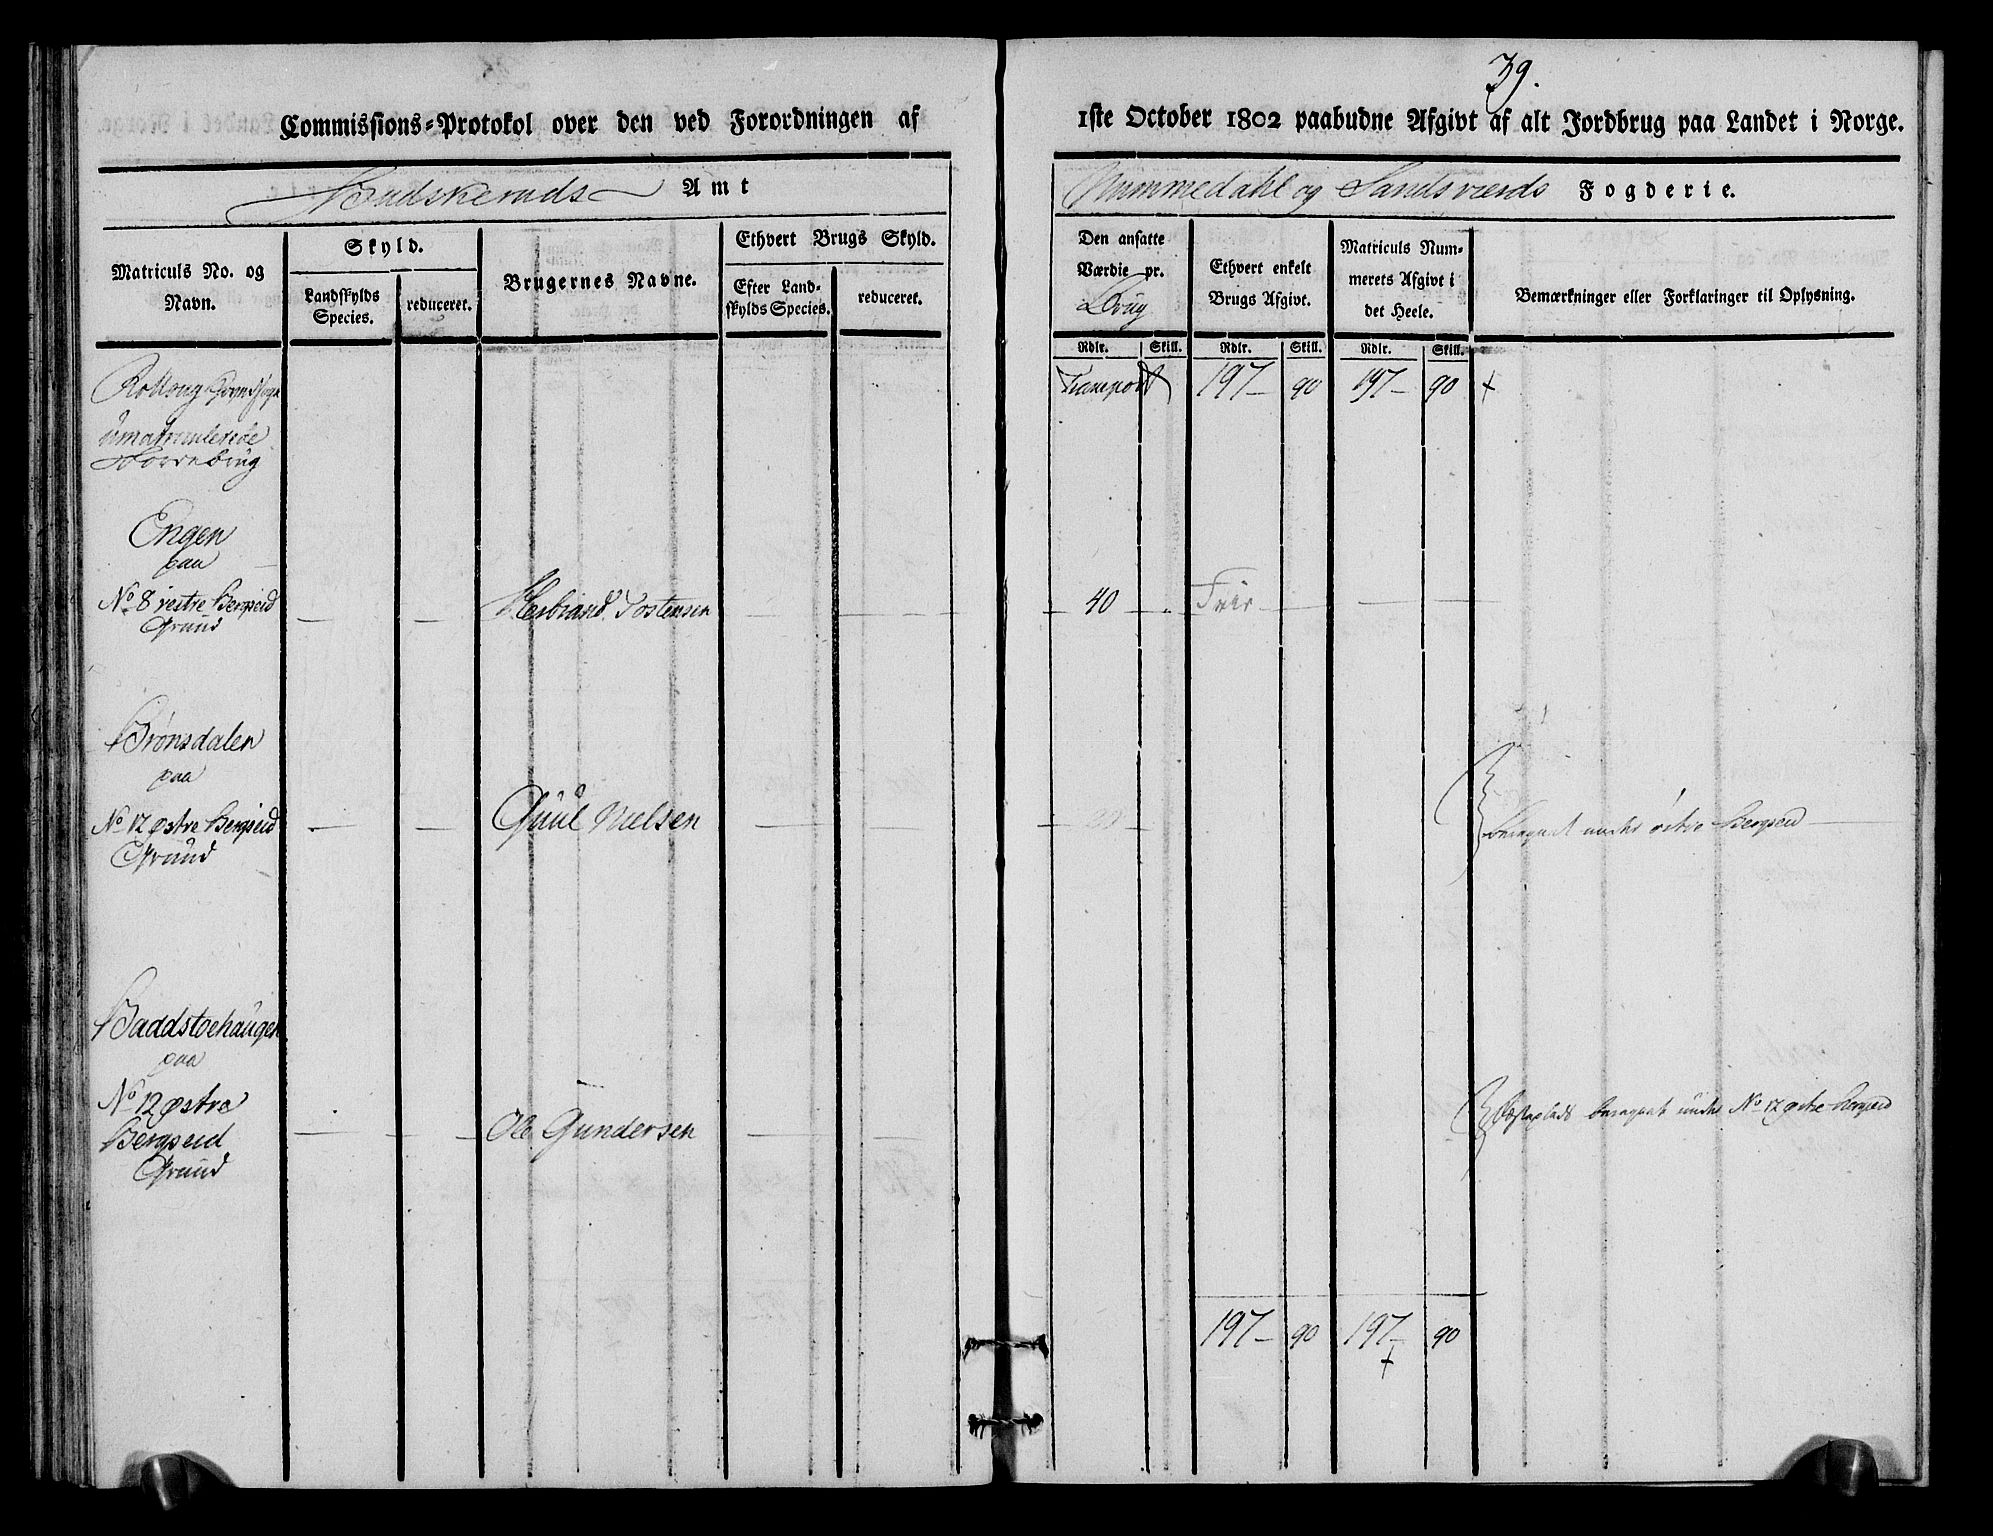 39.
Commissions=Protokol over den ved Forordningen af
1ste October 1802 paabudne Afgivt af alt Jordbrug paa Landet i Norge.
Budskeruds Amt
Nummedahl og Sandsværds Fogderie.
Matriculs No. og
Navn.
Skyld.
Landskylds
Species.
reduceret.
Brugernes Navne.
Ethvert Brugs Skyld.
Efter Land=
skylds Species.
reduceret.
Den ansatte
Værdie pr.
Brug
Ethvert enkelt
Brugs Afgivt.
Matriculs Num=
merets Afgivt i
det Heele.
Bemærkninger eller Forklaringer til Oplysning.
Rdlr. Skill. Rdlr. Skill. Rdlr. Skill.
Rolloug
Transport 197 - 90 197 - 90 +
Engen
paa
No 8 vestre Bergseid
Grund
Herbrand Tostensen
40 Frie
Brønsdalen
paa
No 12 østre Bergseid
Grund
Guul Nielsen
beregnet under østre Bergseid
Baddstoehaugen
paa
No 12 østre
Bergseid
Grund
Ole Gundersen
beregnet under No 12 østre Bergseid
197 - 90 197 - 90
+